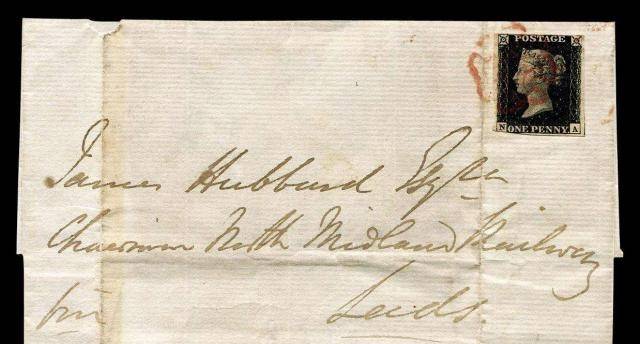 POSTAGE
N ONE PENNY A
James Hubbard Esqre
Chairman North Midland Railway
Leeds